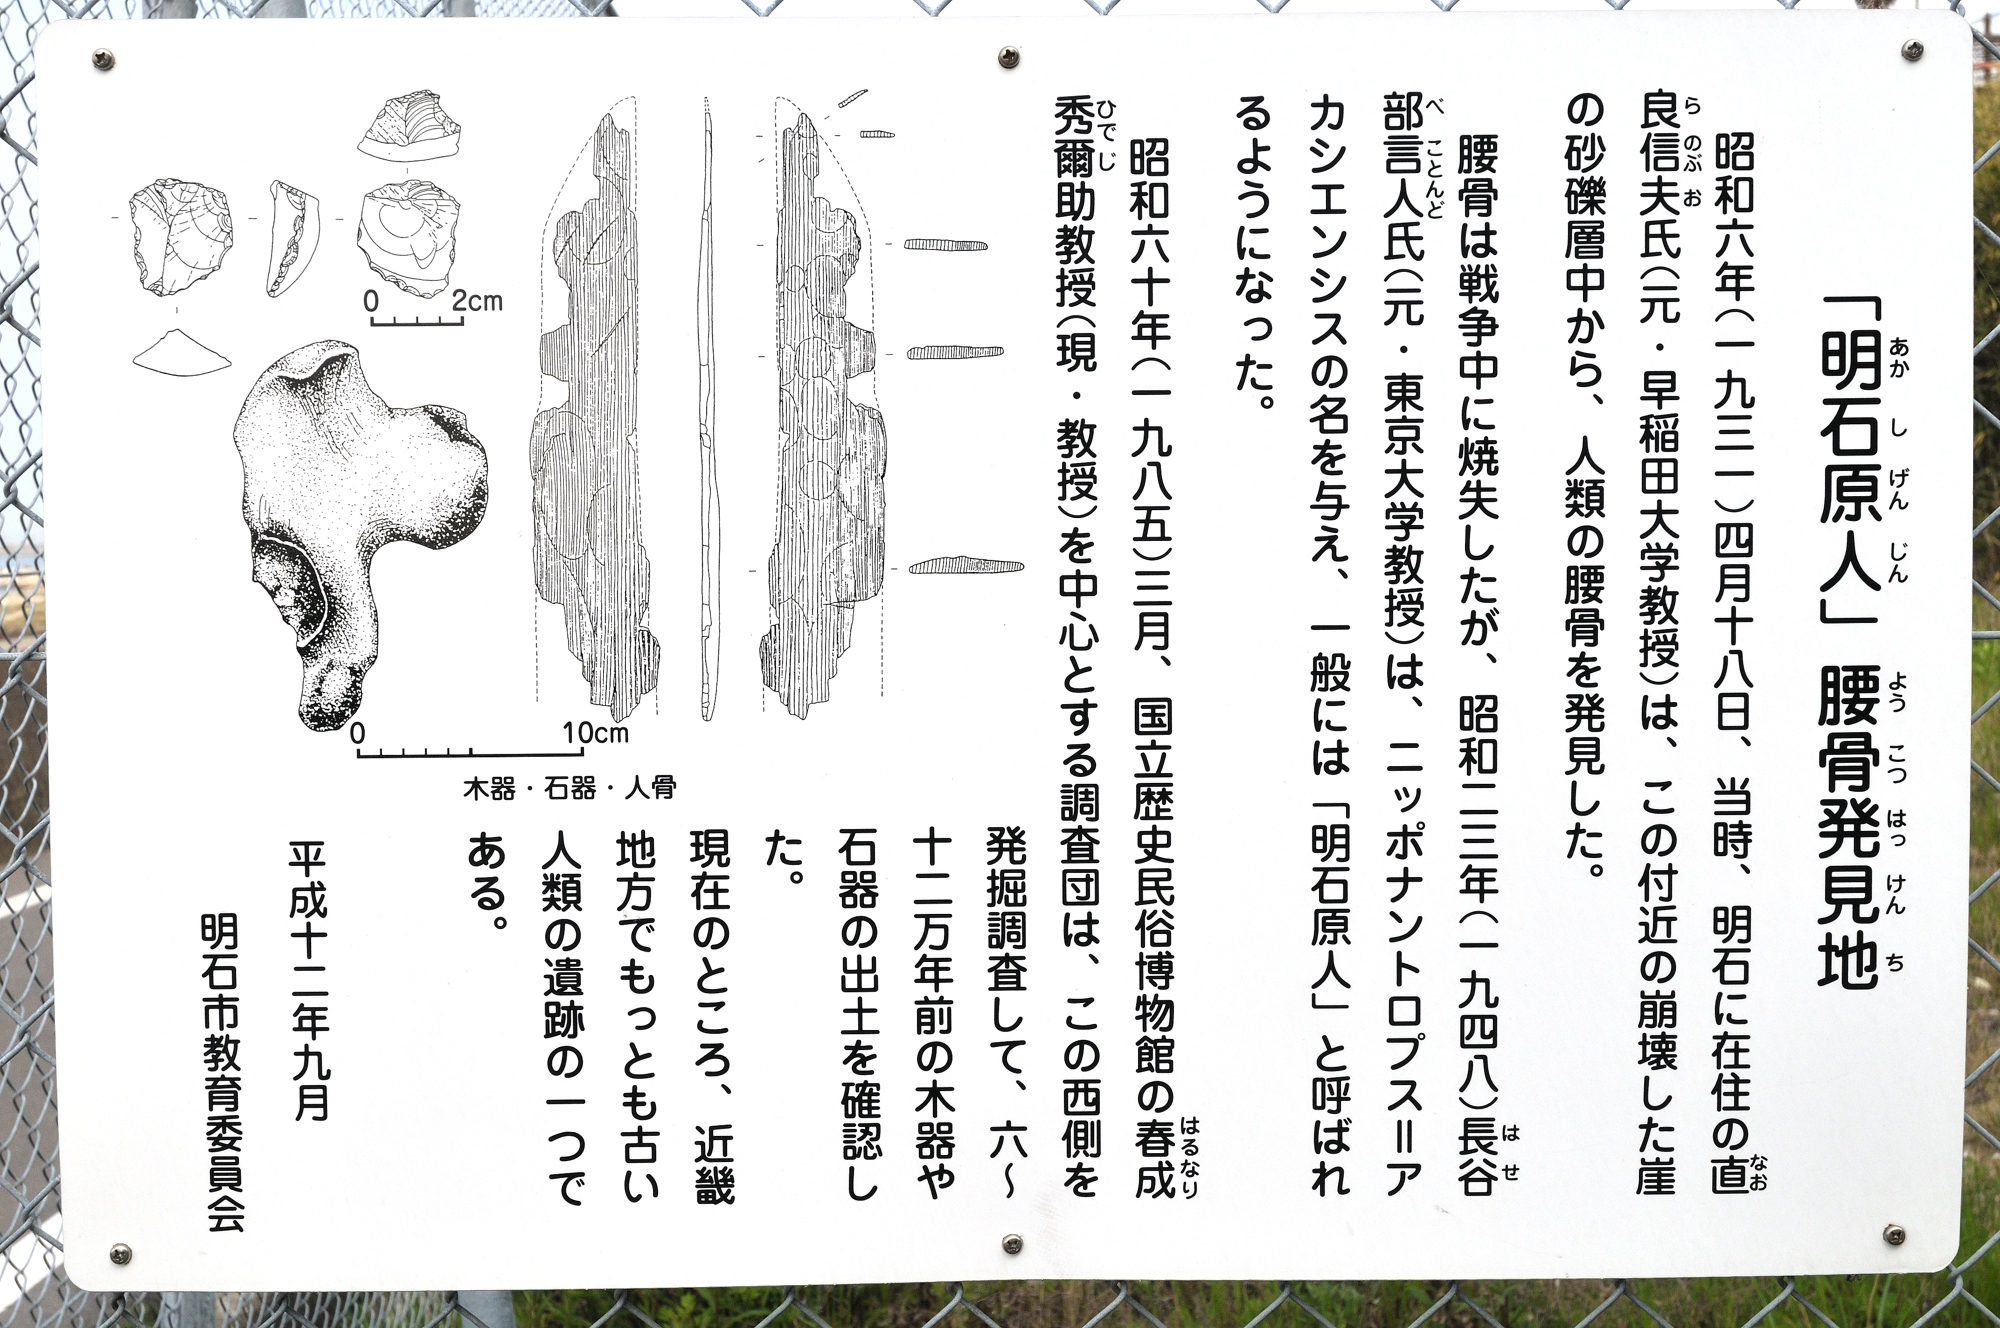 「明石原人」腰骨発見地
あかしげんじん ようこつはっけんち
昭和六年（一九三一）四月十八日、当時、明石に在住の直
なお
良信夫氏（元・早稲田大学教授）は、この付近の崩壊した崖
らのぶお
の砂礫層中から、人類の腰骨を発見した。
腰骨は戦争中に焼失したが、昭和二三年（一九四八）長谷
はせ
部言人氏（元・東京大学教授）は、ニッポナントロプス＝ア
べことんど
カシエンシスの名を与え、一般には「明石原人」と呼ばれ
るようになった。
昭和六十年（一九八五）三月、国立歴史民俗博物館の春成
はるなり
秀爾助教授（現・教授）を中心とする調査団は、この西側を
ひでじ
発掘調査して、六〜
十二万年前の木器や
石器の出土を確認し
た。
現在のところ、近畿
地方でもっとも古い
人類の遺跡の一つで
ある。
平成十二年九月
明石市教育委員会
0 2cm
0 10cm
木器・石器・人骨